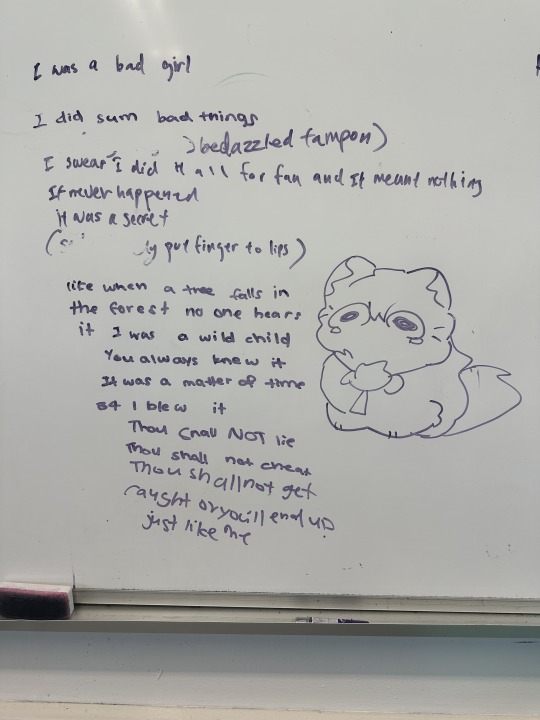 I was a bad girl
I did sum bad things
bedazzled tampon)
I swear I did it all for fun and It meant nothing
It never happened
It was a secret
put finger to lips)
like when a tree falls in
the forest no one hears
it I was a wild child
You always knew it
It was a matter of time
I blew it
Thou shall NOT lie
Thou shall not cheat
Thou shall not get
caught or you'll end up
just like me